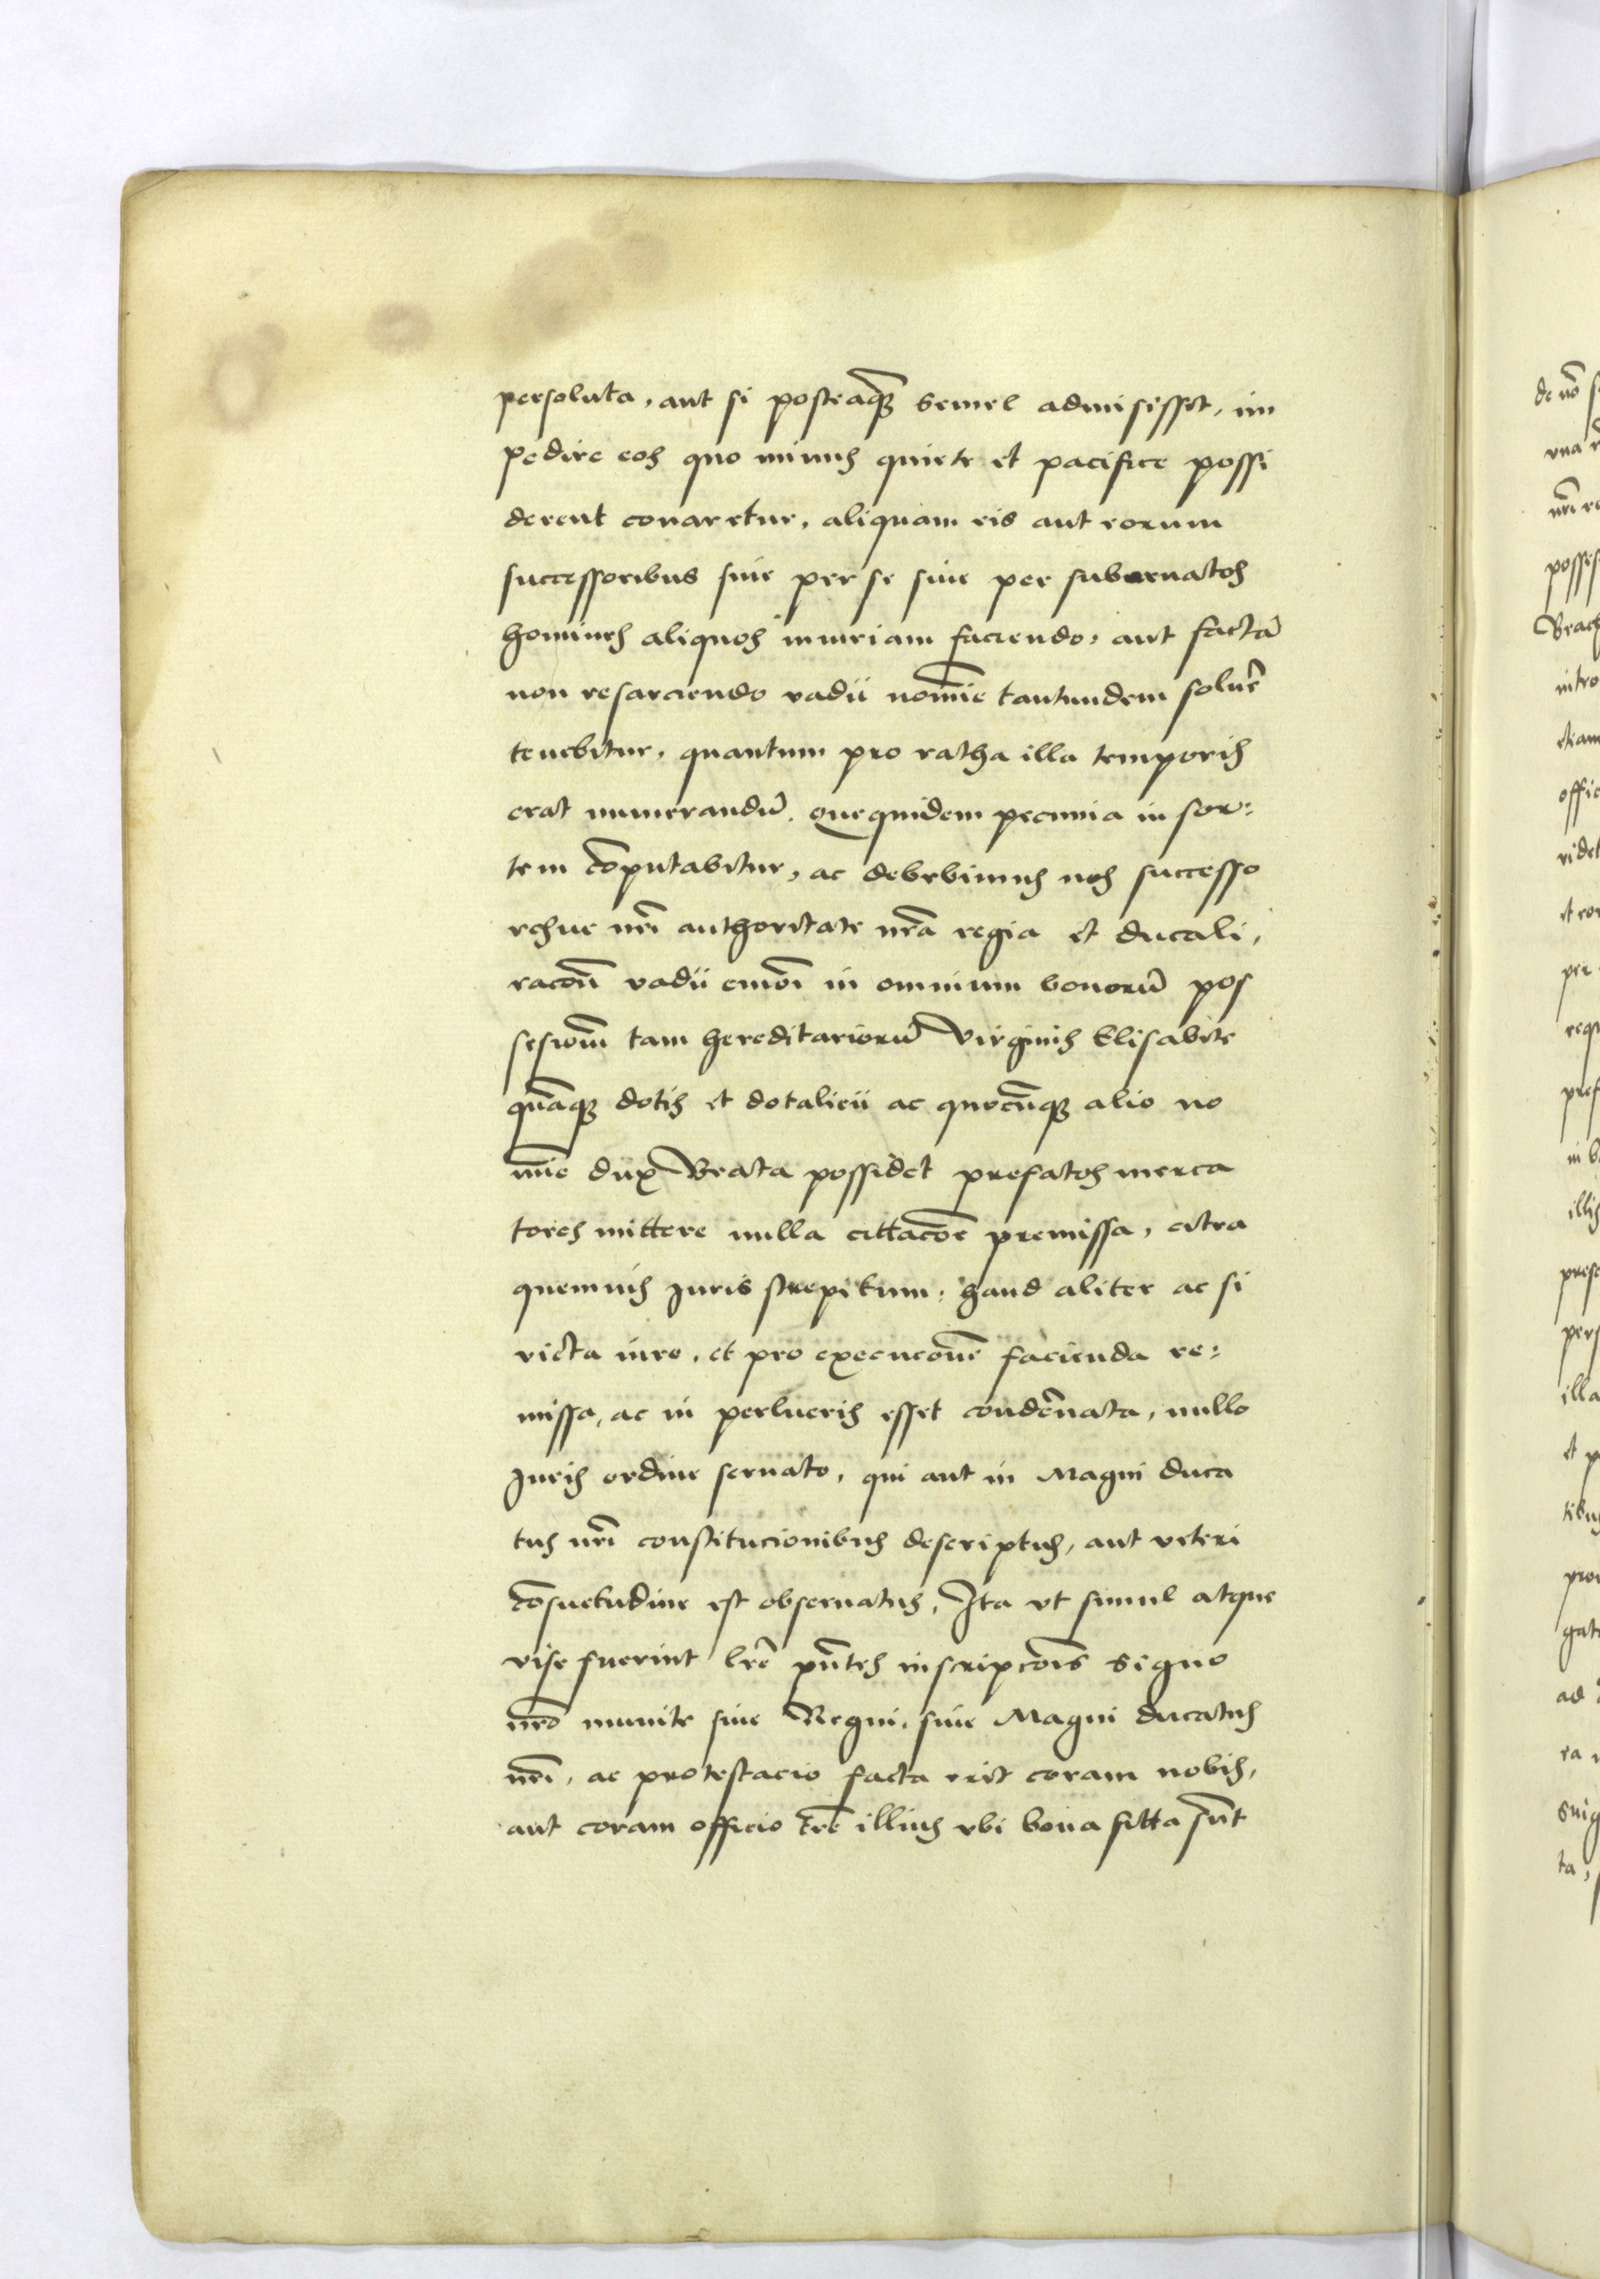 persoluta, aut si posteaq̃ semel admisisset, im
pedire eos quo minus quiete et pacifice possi
derent conaretur, aliquam eis aut eorum
successoribus siue per se siue per subornatos
homines aliquos iniuriam faciendo, aut factã
non resarciendo vadii nomĩe tantundem soluẽ
tenebitur, quantum pro ratha illa temporis
erat numerandũ. que quidem pecunia in sor:
tem cõputabitur, ac debebimus nos successo
resue nr̃i authoritate nr̃a regia et ducali,
racõn vadii em̃oi in omnium bonorũ pos
sesiom̃ tam hereditariorũ Virginis Elisabete
quãq̃ dotis et dotalicii ac quocũq̃ alio no
mĩe dux Beata possidet prefatos merca
tores mittere nulla cittacõe premissa, citra
quemuis Juris strepitum, haud aliter ac si
victa iure, et pro execucõne facienda re:
missa, ac in perlucris esset condẽnata, nullo
Juris ordine seruato, qui aut in Magni duca
tus nr̃i constitucionibus descriptus, aut veteri
cõsuetudine est obseruatus, Ita vt simul atque
vise fuerint lr̃e pñtes inscripcõis signo
nr̃o munite siue Regni, siue Magni ducatus
nr̃i, ac protestacio facta erit coram nobis,
aut coram officio tr̃e illius vbi bona sitta sũt
de nõ
vna
nr̃i
posses
Beach
intro
etiam
offic
videl
et
per
requ
pref
in b
illis
prese
pers
illa
et p
tibus
prou
gat
ad
ra
suig
ta,